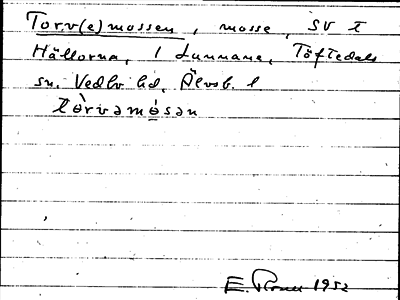 Torv(e)mossen, mosse, SV t
Hällorna, 1 Lunnane, Töftedals
sn. Vedbo hd, Älvsb. l
tòrvəmósən
E. 1952